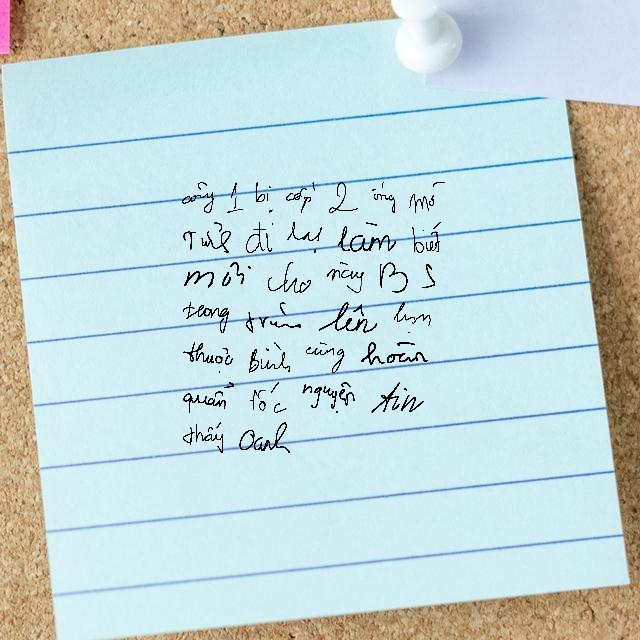 cây 1 bị cấp 2 ứng mó
Tiết đi lại lầm biết
mỗi cho này B S
trong trầm lên lụm
thuộc Bình cũng hoàn
quần tóc nguyện tin
thấy Oanh